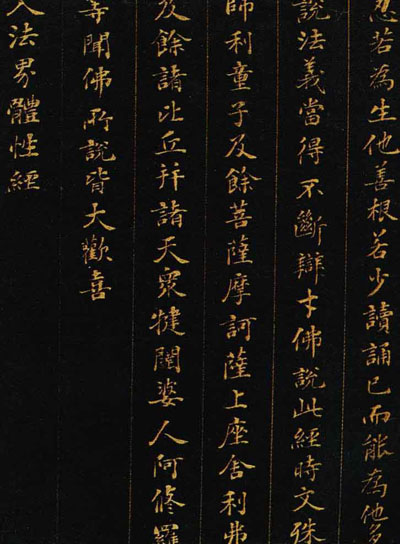 忍若為生他善根若少讀誦已而能為他多
說法義當得不斷辯才佛說此經時文殊
師利童子及餘菩薩摩訶薩上座舍利弗
及餘諸比丘并諸天眾犍闥婆人阿修羅
等聞佛所說皆大歡喜
入法界體性經